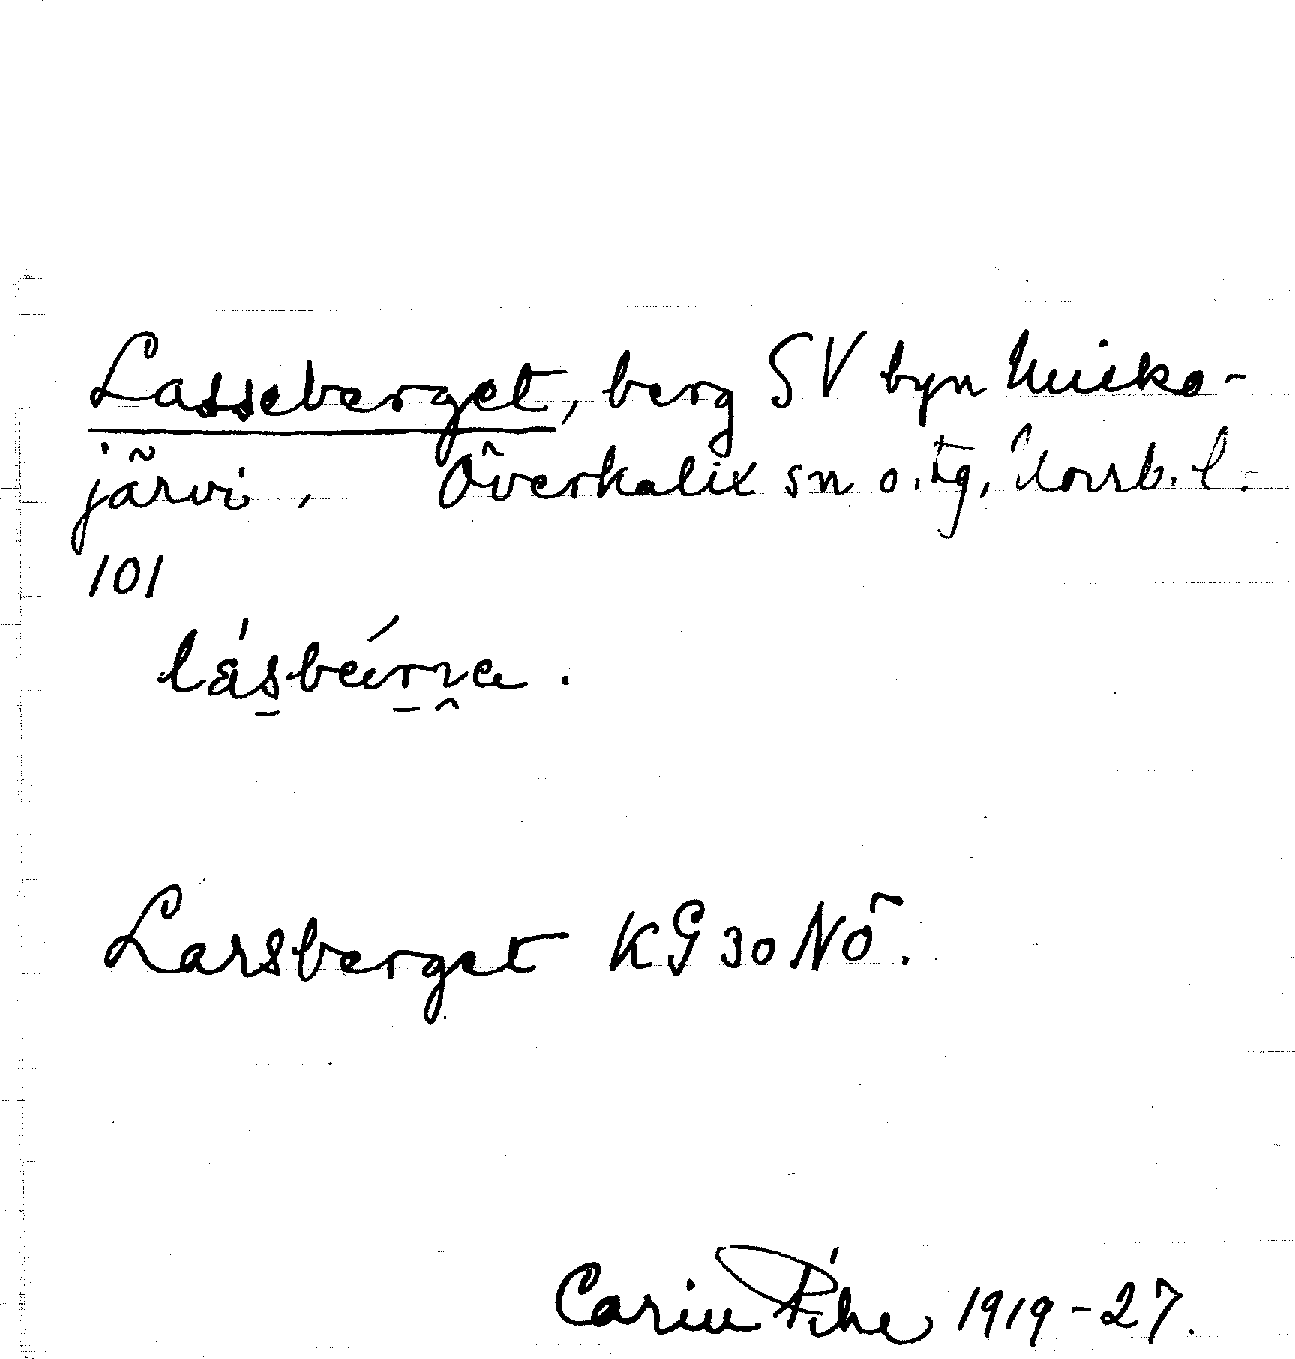 Lasseberget, berg SV byn Mieko-
järvi, Överkalix sn o. tg, Norrb. l.
101
Larsberget KG 30 NÖ.
Carin Pihl 1919-27.